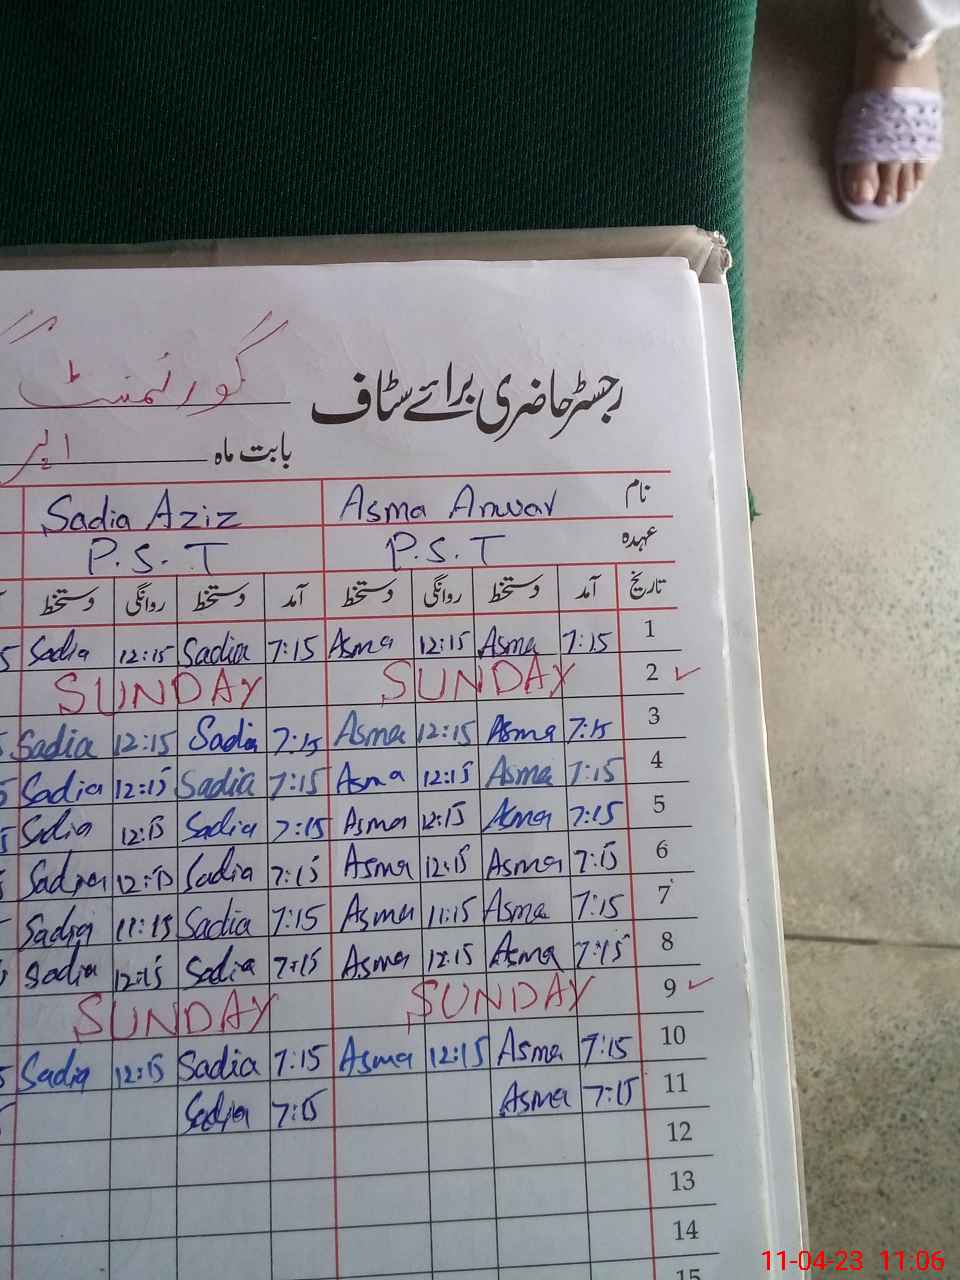 گورنمنٹ
رجسٹر حاضری برائے سٹاف
بابت ماہ
نام Asma Anwar Sadia Aziz
عہدہ P.S.T P.S.T
تاریخ آمد دستخط روانگی دستخط آمد دستخط روانگی دستخط
1 7:15 Asma 12:15 Asma 7:15 Sadia 12:15 Sadia
2 SUNDAY SUNDAY
3 7:15 Asma 12:15 Asma 7:15 Sadia 12:15 Sadia
4 7:15 Asma 12:15 Asma 7:15 Sadia 12:15 Sadia
5 7:15 Asma 12:15 Asma 7:15 Sadia 12:15 Sadia
6 7:15 Asma 12:15 Asma 7:15 Sadia 12:15 Sadia
7 7:15 Asma 11:15 Asma 7:15 Sadia 11:15 Sadia
8 7:15 Asma 12:15 Asma 7:15 Sadia 12:15 Sadia
9 SUNDAY SUNDAY
10 7:15 Asma 12:15 Asma 7:15 Sadia 12:15 Sadia
11 7:15 Asma 7:15 Sadia
12
13
14
15
11-04-23 11:06